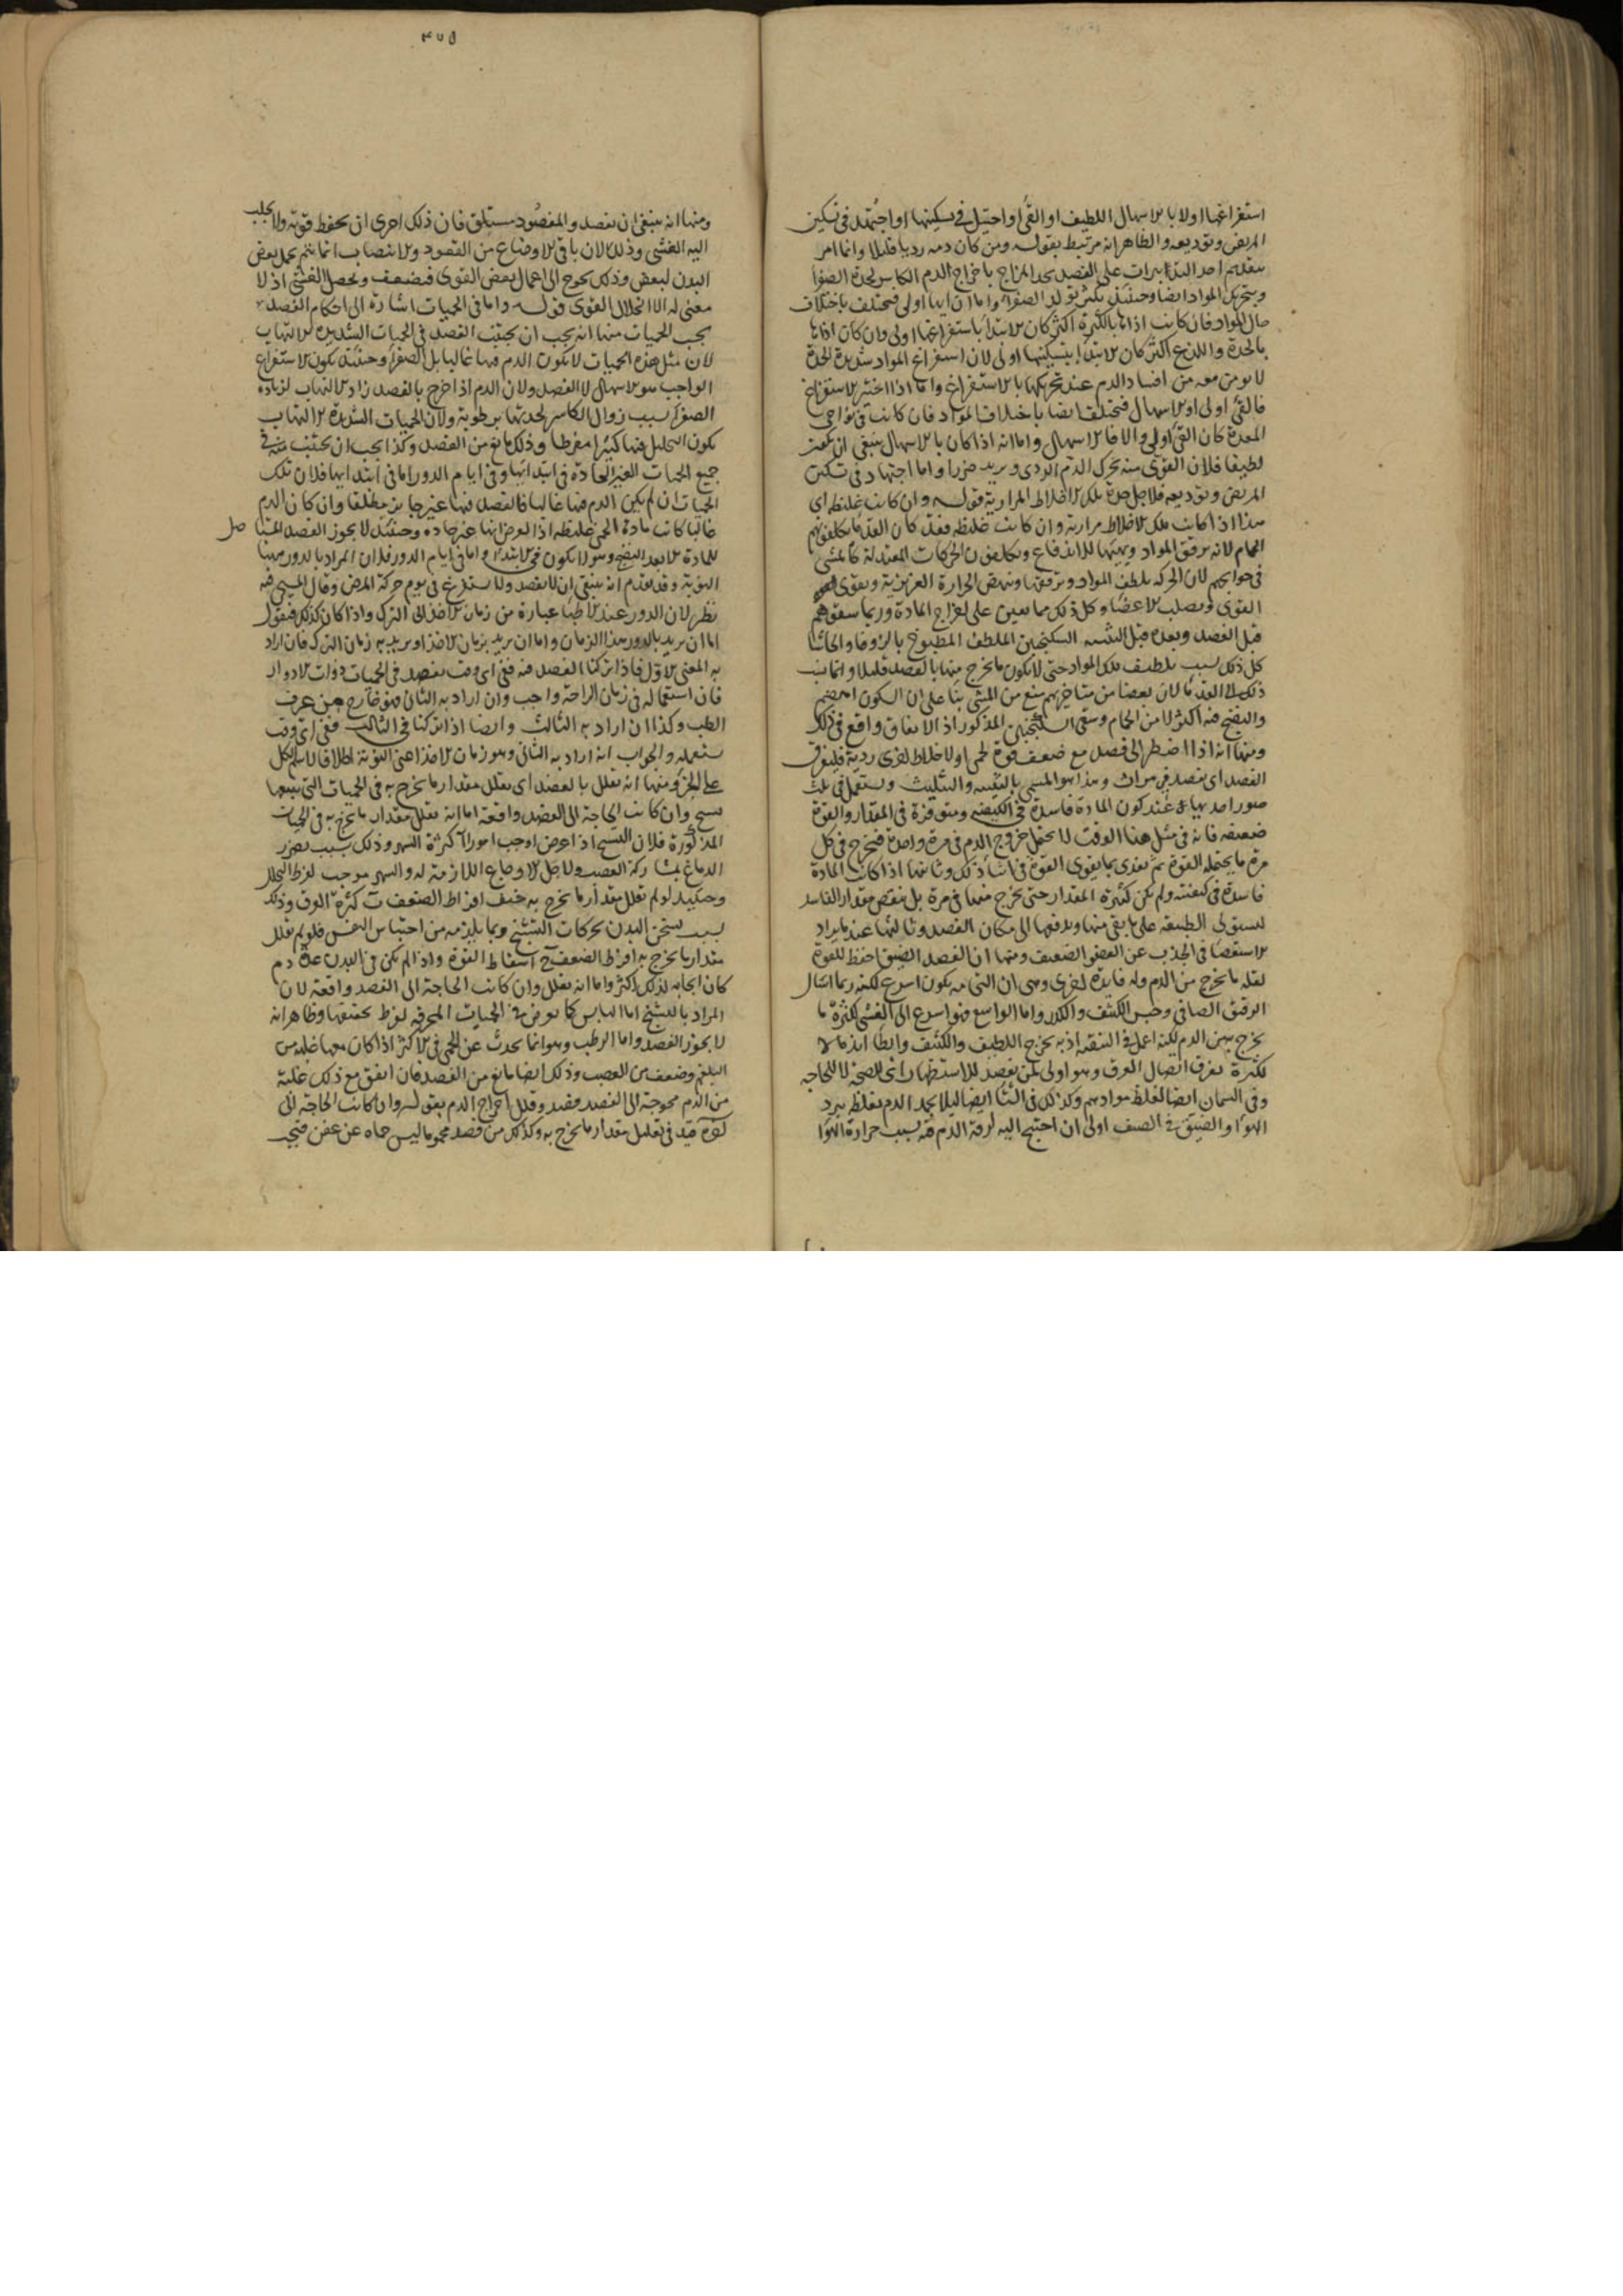 استفراغها اولا بالاسهال اللطيف او القئ او احتيل في تسكينها او اجتهد في تسكين
المريض وتوديعه والظاهر انه مرتبط بقوله ومن كان دمه رديا قليلا وانما امر
بتقديم احد التدبيرات على الفصد لحد المزاج باخراج الدم الكاسر لحدة الصفرا
وبتحريك المواد ايضا وحينئذ يكثر تولد الصفرا واما ان ايها اولى فيختلف باختلاف
حال المواد فان كانت اذاها بالكثرة اكثر كان الابتدا باستفراغها اولى وان كان اذاها
بالحدة واللذع اكثر كان الابتدا بتسكينها اولى لان استفراغ المواد شديدة الحدة
لا يومن معه من افساد الدم عند تحريكها بالاستفراغ واما اذا اختير الاستفراغ
فالقئ اولى او الاسهال فيختلف ايضا باختلاف المواد فان كانت في نواحي
المعدة كان القئ اولى والا فالاسهال واما انه اذا كان بالاسهال ينبغي ان يكون
لطيفا فلان القوي منه يحرك الدم الردي ويزيد ضررا واما اجتهاد في تسكين
المريض وتوديعه فلاجل حدة تلك الاخلاط المرارية قوله وان كانت غليظة اي
هذا اذا كانت تلك الاخلاط مرارية وان كانت غليظة فقد كان القدما يكلفونهم
الحمام لانه يرقق المواد ويهيئها للاندفاع ويكلفون الحركات المعتدلة كالمشي
في حوايجهم لان الحركة تلطف المواد وترققها وتنهض الحرارة الغريزية وتقوي
القوى وتصلب الاعضا وكل ذلك مما يعين على اخراج المادة وربما سقوهم
قبل الفصد وبعده قبل التثنية السكنجبين الملطف المطبوخ بالزوفا والحاشا
كل ذلك لسبب تلطيف تلك المواد حتى لا يكون ما يخرج منها بالفصد قليلا وانما نسب
ذلك الى القدما لان بعضا من متاخريهم منع من المشي بنا على ان السكون اهضم
والنضج فيه اكثر لا من الحمام وسقي السكنجبين المذكور اذ الاتفاق واقع في ذلك
ومنها انه اذا اضطر الى فصد مع ضعف قوة لحمى او لاخلاط اخرى ردية فليفرق
الفصد اي يفصد في مرات وهذا هو المسمى بالتثنية والتثليث ويستعمل في ثلث
صور احديها عند كون المادة فاسدة في الكيفية ومتوفرة في المقدار والقوة
ضعيفة فانه في مثل هذا الوقت لا تحتمل خروج الدم في مرة واحدة فيخرج في كل
مرة ما يحتمله القوة ثم يغذى بما يقوي القوة في اثنا ذلك وثانيها اذا كانت المادة
فاسدة في كيفيته ولم تكن كثيرة المقدار حتى يخرج منها في مرة بل ينقص مقدار الفاسد
لتستولي الطبيعة على ما بقي منها ويدفعها الى مكان الفصد وثالثها عند ما يراد
الاستقصا في الجذب عن العضو الضعيف ومنها ان الفصد الضيق احفظ للقوة
لقلة ما يخرج من الدم وله فايدة اخرى وهي ان التي منه يكون اسرع لكنه ربما اسال
الرقيق الصافي وحبس الكثيف والكدر واما الواسع فهو اسرع الى الغشي لكثرة ما
يخرج به من الدم لكنه اعمل في التنقية اذ به يخرج اللطيف والكثيف وابطأ اندمالا
لكثرة تفرق اتصال العرق وهو اولى لمن يفصد للاستظهار اي للصحة لا للحاجة
وفي السمان ايضا لغلظ موادهم وكذلك في الشتا ايضا ليلا يجمد الدم بغلظ ببرد
الهوا والضيق في الصيف اولى ان احتيج اليه لرقة الدم فيه بسبب حرارة الهوا
٣٥٥
ومنها انه ينبغي ان يفصد والمفصود مستلق فان ذلك احرى ان يحفظ قوته ولا يجلب
اليه الغشي وذلك لان باقي الاوضاع من القعود والانتصاب انما يتم بحمل بعض
البدن لبعض وذلك يحوج الى اعمال بعض القوى فيضعف ويحصل الغشي اذ لا
معنى له الا انحلال القوى قوله واما في الحميات اشارة الى احكام الفصد
بحسب الحميات منها انه يجب ان يجتنب الفصد في الحميات الشديدة الالتهاب
لان مثل هذه الحميات لا يكون الدم فيها غالبا بل الصفرا وحينئذ يكون الاستفراغ
الواجب هو الاسهال لا الفصد ولان الدم اذا خرج بالفصد زاد الالتهاب لزيادة
الصفرا بسبب زوال الكاسر لحدتها برطوبته ولان الحميات الشديدة الالتهاب
يكون التحليل فيها كثيرا مفرطا وذلك مانع من الفصد وكذا يجب ان يجتنب منه في
جميع الحميات الغير الحادة في ابتدائها وفي ايام الدور اما في ابتدايها فلان تلك
الحميات ان لم يكن الدم فيها غالبا فالفصد فيها غير جايز مطلقا وان كان الدم
غالبا كانت مادة الحمى غليظة اذ الفرض انها غير حادة وحينئذ لا يجوز الفصد المنقيا
للمادة الا بعد النضج وهو لا يكون في الابتدا واما في ايام الدور فلان المراد بالدور ههنا
النوبة وقد تقدم انه ينبغي ان لا يفصد ولا يستفرغ في يوم حركة المرض وقال المسيحي فيه
نظر لان الدور عند الاطبا عبارة من زمان الاخذ الى الترك واذا كان كذلك فنقول
اما ان يريد بالدور هذا الزمان واما ان يريد بزمان الاخذ او يريد به زمان الترك فان اراد
به المعنى الاول فاذا تركنا الفصد فيه ففي اي وقت يفصد في الحميات ذوات الادوار
فان استعماله في زمان الراحة واجب وان اراد به الثاني فهو خارج من عرف
الطب وكذا ان اراد به الثالث وايضا اذا تركنا في الثالث ففي اي وقت
نستعمله والجواب انه اراد به الثاني وهو زمان الاخذ اعني النوبة اطلاقا لاسم الكل
على الجزء ومنها انه يقلل بالفصد اي يقلل مقدار ما يخرج به في الحميات التي يتبعها
تشنج وان كانت الحاجة الى الفصد واقعة اما انه يقلل مقدار ما يخرج به في الحميات
المذكورة فلان التشنج اذا عرض اوجب امورا كثرة السهر وذلك بسبب تضرر
الدماغ بمشاركة العصب ولاجل الاوجاع اللازمة له والسهر موجب لفرط التحلل
وحينئذ لو لم يقلل مقدار ما يخرج به خيف افراط الضعف ب كثرة العرق وذلك
بسبب تسخن البدن بحركات التشنج وبما يلزمه من احتباس النفس فلو لم يقلل
مقدار ما يخرج به افرط الضعف ج اسقاط القوة واذا لم يكن في البدن عدة دم
كان ايجابه لذلك اكثر واما انه يقلل وان كانت الحاجة الى الفصد واقعة لان
المراد بالتشنج اما اليابس كما يعرض في الحميات المحرقة لفرط تجفيفها وظاهر انه
لا يجوز الفصد واما الرطب وهو انما يحدث عن الحمى في الاكثر اذا كان معها غلبة من
البلغم وضعف من العصب وذلك ايضا مانع من الفصد فان اتفق مع ذلك غلبة
من الدم محوجة الى الفصد فصد وقلل اخراج الدم بقوله وان كانت الحاجة الى
اخره قيد في تقليل مقدار ما يخرج به وكذلك من فصد محموما ليس حماه عن عفن فيجب